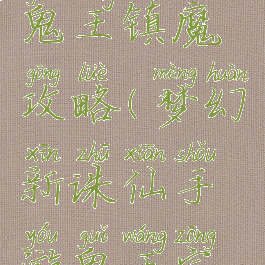 鬼王镇魔
gōng lüè mèng huàn
攻略(梦幻
xīn zhū xiān shǒu
新诛仙手
yóu guǐ wáng zōng
游鬼王宗